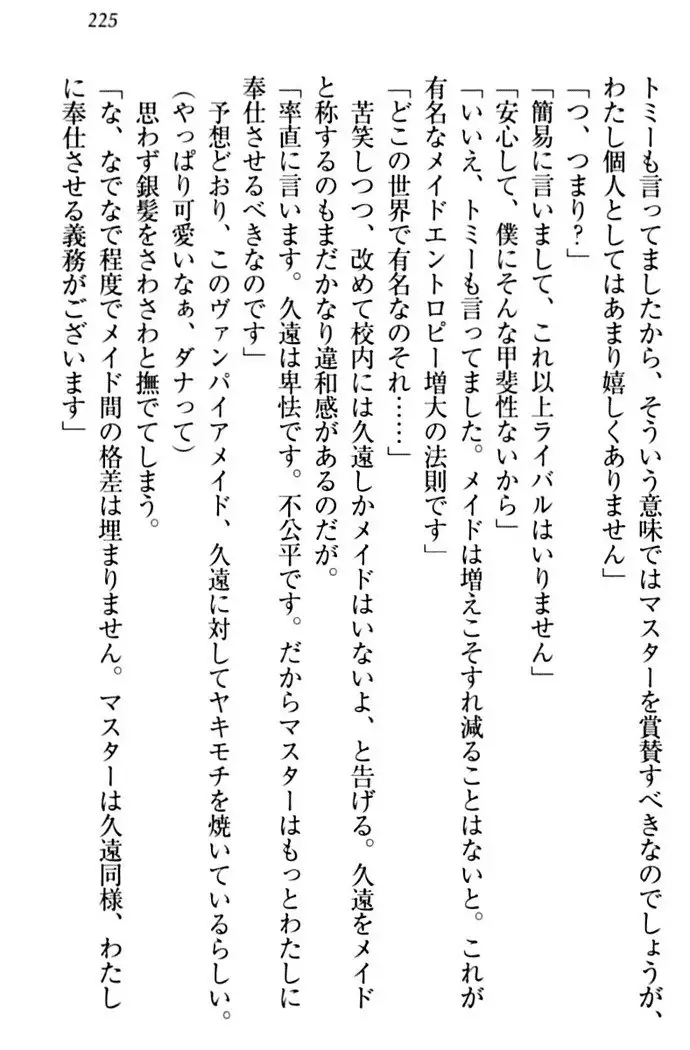 225
トミーも言ってましたから、そういう意味ではマスターを賞賛すべきなのでしょうが、
わたし個人としてはあまり嬉しくありません」
「つ、つまり?」
「簡易に言いまして、これ以上ライバルはいりません」
「安心して、僕にそんな甲斐性ないから」
「いいえ、トミーも言ってました。メイドは増えこそすれ減ることはないと。これが
有名なメイドエントロピー増大の法則です」
「どこの世界で有名なのそれ……」
苦笑しつつ、改めて校内には久遠しかメイドはいないよ、と告げる。久遠をメイド
と称するのもまだかなり違和感があるのだが。
「率直に言います。久遠は卑怯です。不公平です。だからマスターはもっとわたしに
奉仕させるべきなのです」
予想どおり、このヴァンパイアメイド、久遠に対してヤキモチを焼いているらしい。
(やっぱり可愛いなぁ、ダナって)
思わず銀髪をさわさわと撫でてしまう。
「な、なでなで程度でメイド間の格差は埋まりません。マスターは久遠同様、わたし
に奉仕させる義務がございます」